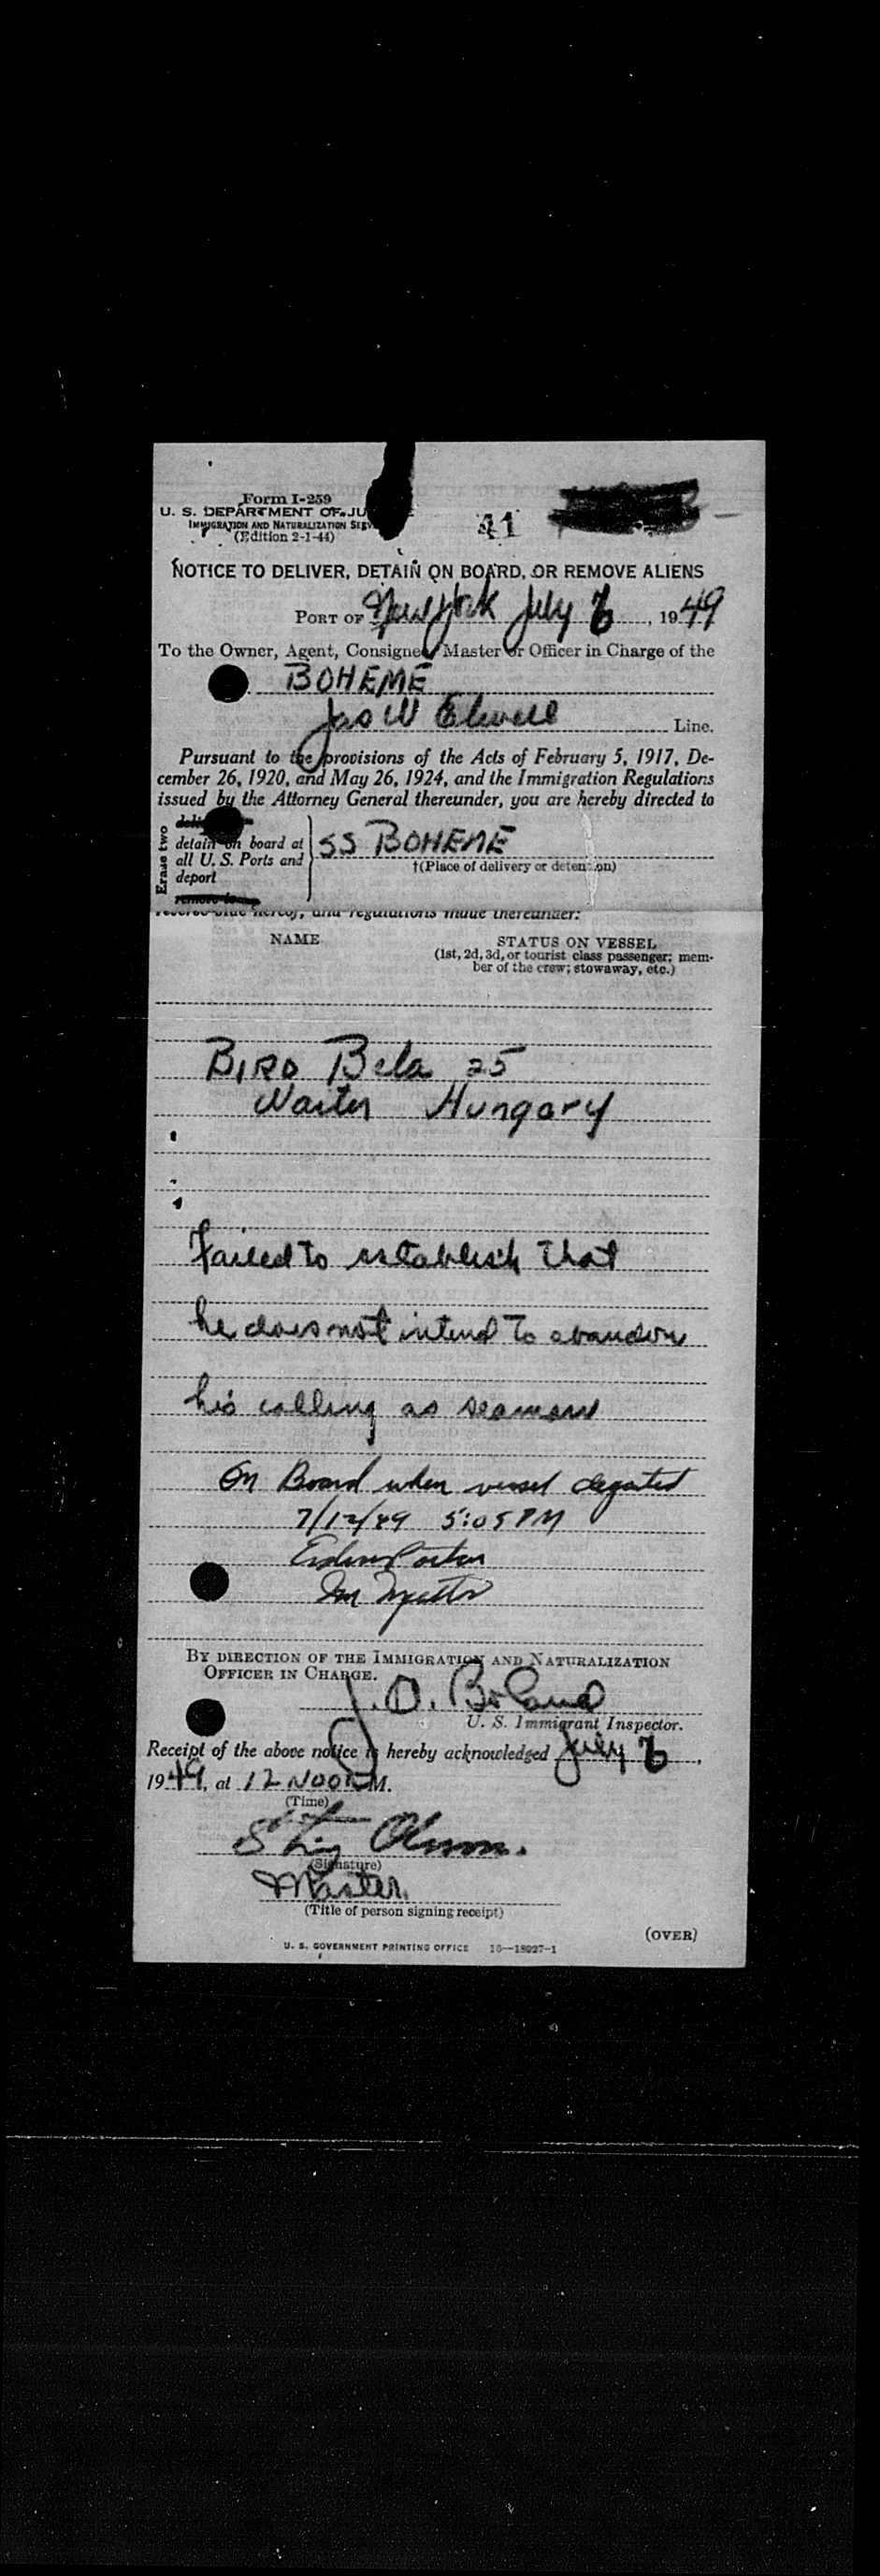 Form I-259
U. S. DEPARTMENT OF JU
IMMIGRATION AND NATURALIZATION SERV
(Edition 2-1-44)
41
NOTICE TO DELIVER, DETAIN ON BOARD, OR REMOVE ALIENS
PORT OF New York July 6, 1949
To the Owner, Agent, Consignee, Master or Officer in Charge of the
BOHEME
Jas W Elwell Line.
Pursuant to the provisions of the Acts of February 5, 1917, De-
cember 26, 1920, and May 26, 1924, and the Immigration Regulations
issued by the Attorney General thereunder, you are hereby directed to
Erase two
detain on board at
all U. S. Ports and
deport
remove to
SS BOHEME
†(Place of delivery or detention)
reverse side hereof, and regulations made thereunder:
NAME
STATUS ON VESSEL
(1st, 2d, 3d, or tourist class passenger; mem-
ber of the crew; stowaway, etc.)
BIRO Bela 25
Waiter Hungary
Failed to establish that
he does not intend to abandon
his calling as seaman
On Board when vessel departed
7/12/49 5:05 PM
BY DIRECTION OF THE IMMIGRATION AND NATURALIZATION
OFFICER IN CHARGE.
J. O. Boland
U. S. Immigrant Inspector.
Receipt of the above notice is hereby acknowledged July 6,
1949, at 12 NOON M.
(Time)
Olsson.
(Signature)
Master.
(Title of person signing receipt)
(OVER)
U. S. GOVERNMENT PRINTING OFFICE 16—18027-1